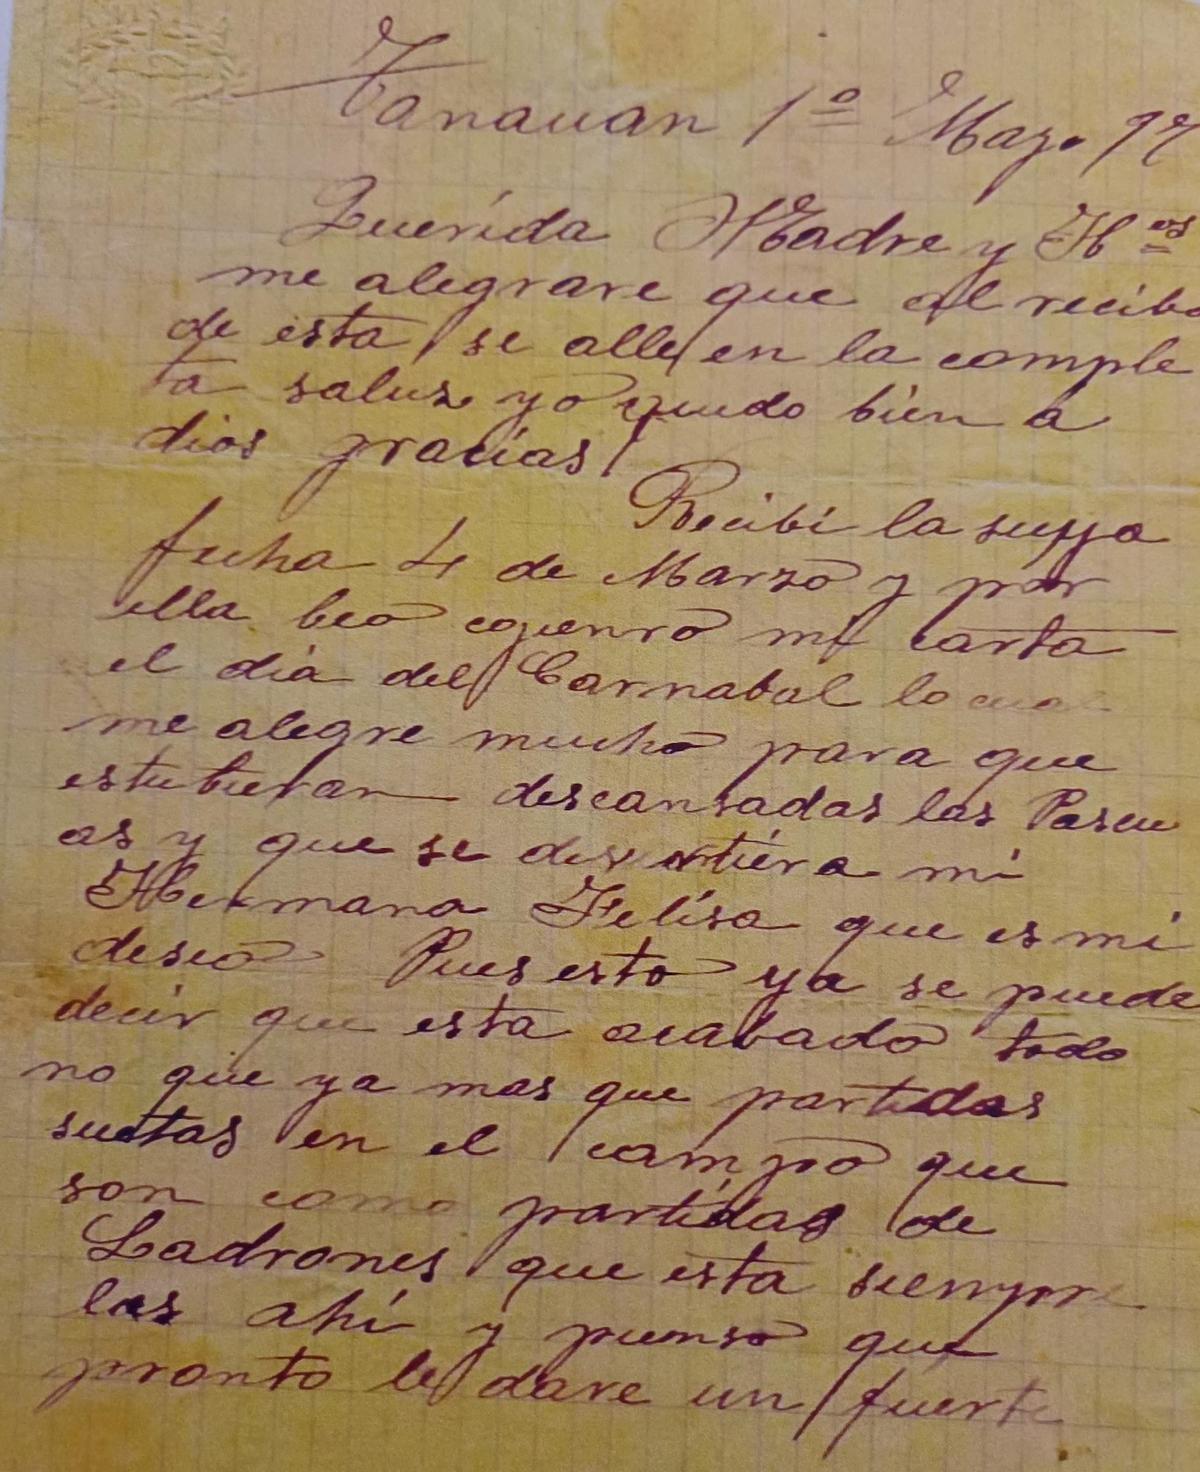 Tanauan 1º Mayo 97
Querida Madre y Hos
me alegrare que al recibo
de esta se alle en la comple
ta salus yo quedo bien a
dios gracias
Recibi la suya
fecha 4 de Marzo y por
ella beo cojieron mi carta
el dia del Carnabal lo cual
me alegre mucho para que
estubieran descansadas las Pascu
as y que se divirtiera mi
Hermana Felisa que es mi
deseo Pues esto ya se puede
decir que esta acabado todo
no que ya mas que partidas
sueltas en el campo que
son como partidas de
Ladrones que esta siempre
las ahi y pienso que
pronto le dare un fuerte